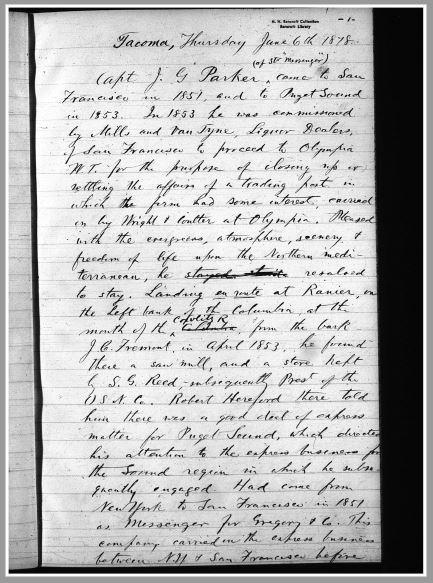 H. H. Bancroft Collection
Bancroft Library
-1-
Tacoma, Thursday June 6th 1878.
(of Str "Messenger")
Capt J. G Parker, came to San
Francisco in 1851, and to Puget Sound
in 1853. In 1853 he was commissioned
by Mills and Van Tyne, Liquor Dealers,
of San Francisco to proceed to Olympia
W.T. for the purpose of closing up or
settling the affairs of a trading post in
which the firm had some interest, carried
on by Wright & Coulter at Olympia. Pleased
with the evergreens, atmosphere, scenery &
freedom of life upon the Northern medi-
terranean, he stayed resolved
to stay. Landing en route at Ranier, on
the left bank of the Columbia, at the
Cowlitz R.
mouth of the Columbia, from the bark
J. C. Fremont, in April 1853, he found
there a saw mill, and a store kept
by S. G. Reed, subsequently Prest of the
O S N. Co. Robert Hereford there told
him there was a good deal of express
matter for Puget Sound, which directed
his attention to the express business for
the Sound region in which he subse-
quently engaged. Had come from
New York to San Francisco in 1851
as Messenger for Gregory & Co. This
company carried on the express business
between N.Y & San Francisco before